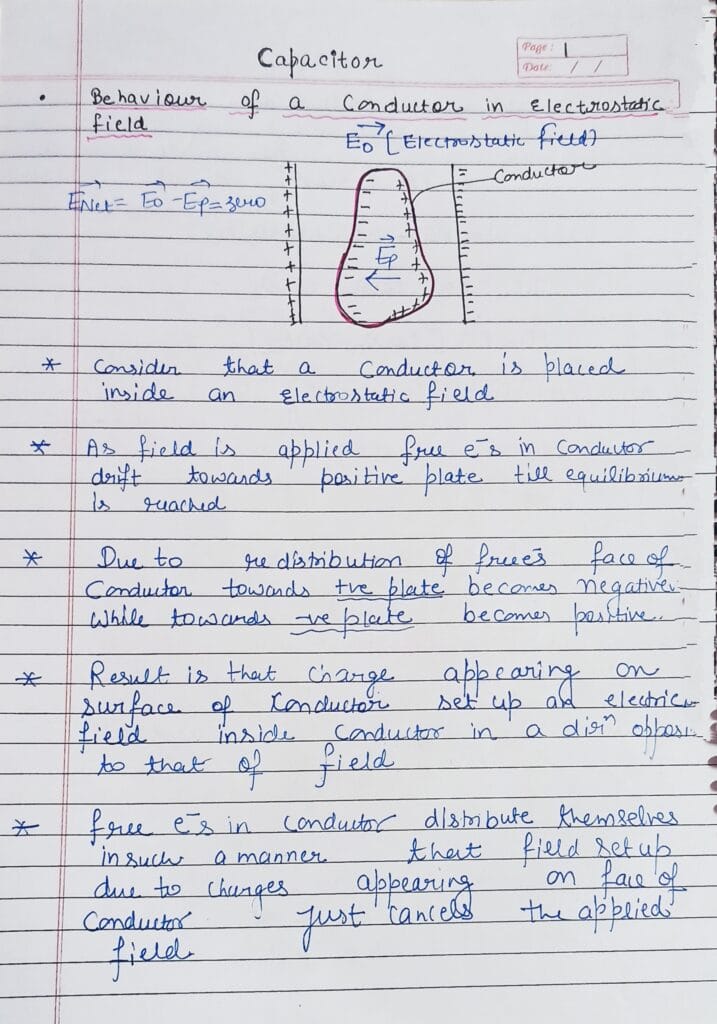 Capacitor
Page: 1
Date: / /
• Behaviour of a Conductor in Electrostatic
field
E0 (Electrostatic field)
Conductor
ENet = E0 - Ep = zero
Ep
* Consider that a Conductor is placed
inside an Electrostatic field
* As field is applied free e-s in Conductor
drift towards positive plate till equilibrium
is reached
* Due to redistribution of free e-s face of
Conductor towards +ve plate becomes negative
While towards -ve plate becomes positive.
* Result is that charge appearing on
surface of Conductor set up an electric
field inside Conductor in a dirn opposi
to that of field
* free e-s in Conductor distribute themselves
in such a manner that field set up
due to charges appearing on face of
Conductor just cancels the applied
field